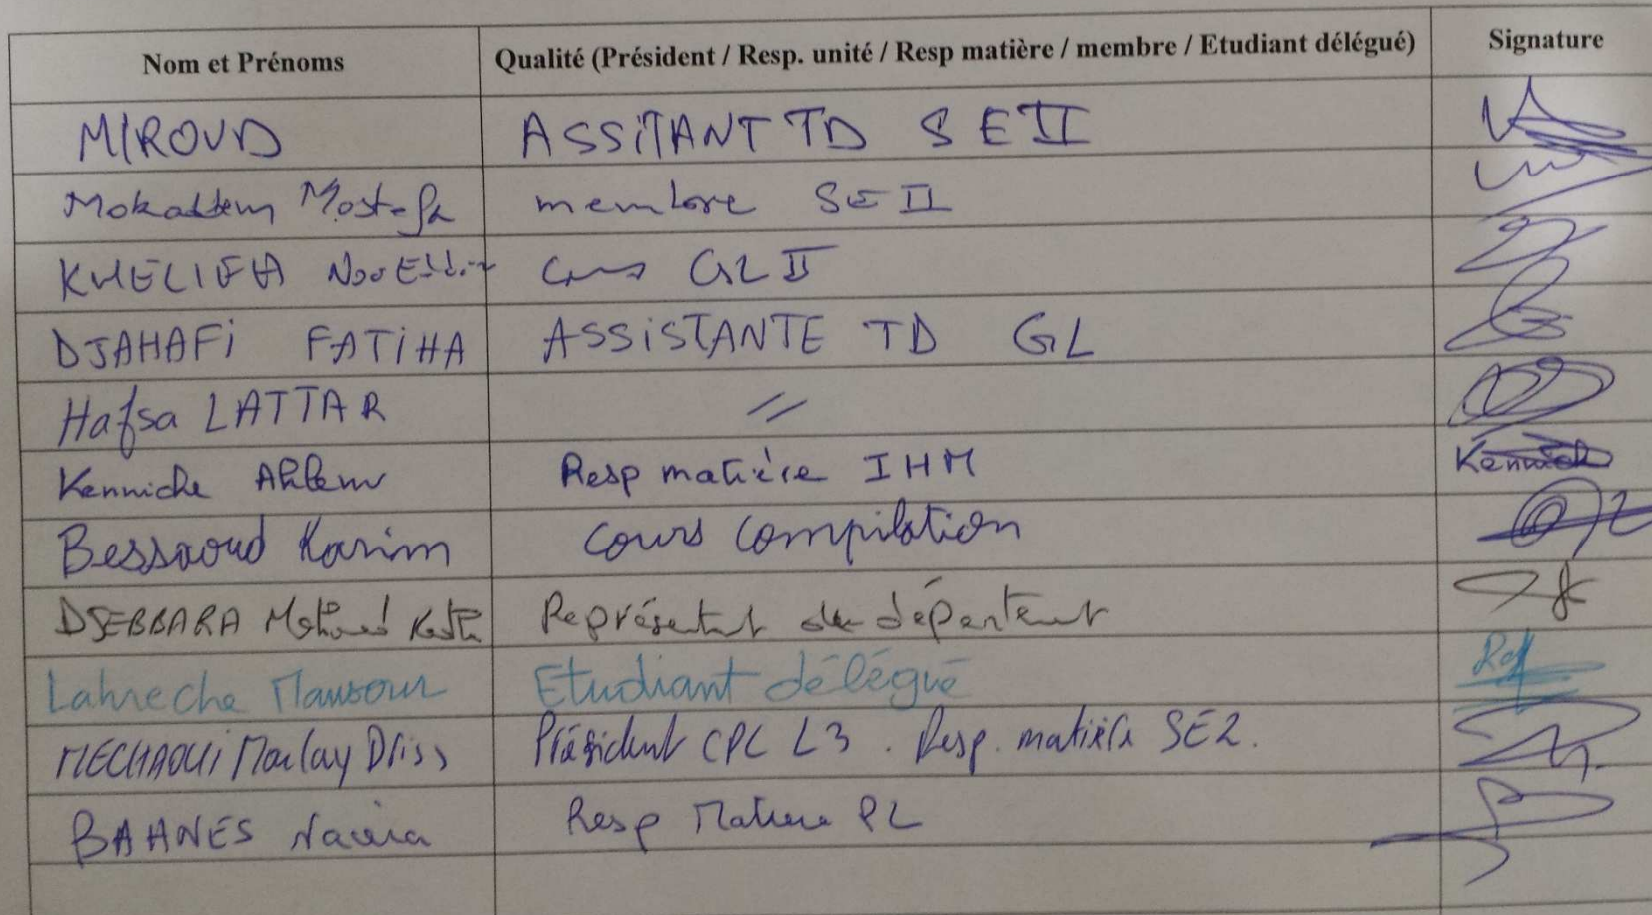 Nom et Prénoms Qualité (Président / Resp. unité / Resp matière / membre / Etudiant délégué) Signature
MIROUD ASSITANT TD SE II
Mokaddem Mostefa membre SE II
KHELIFA NooEddine Cours GL II
DJAHAFI FATIHA ASSISTANTE TD GL
Hafsa LATTAR //
Kenniche Ahlem Resp matière IHM Kenniche
Bessaoud Karim Cours Compilation
DJEBBARA Représentant de département
Lahreche Mansour Etudiant délégué
MECHAOUI Moulay Driss Président CPC L3 . Resp. matière SE2.
BAHNES Nacéra Resp Matiere PL